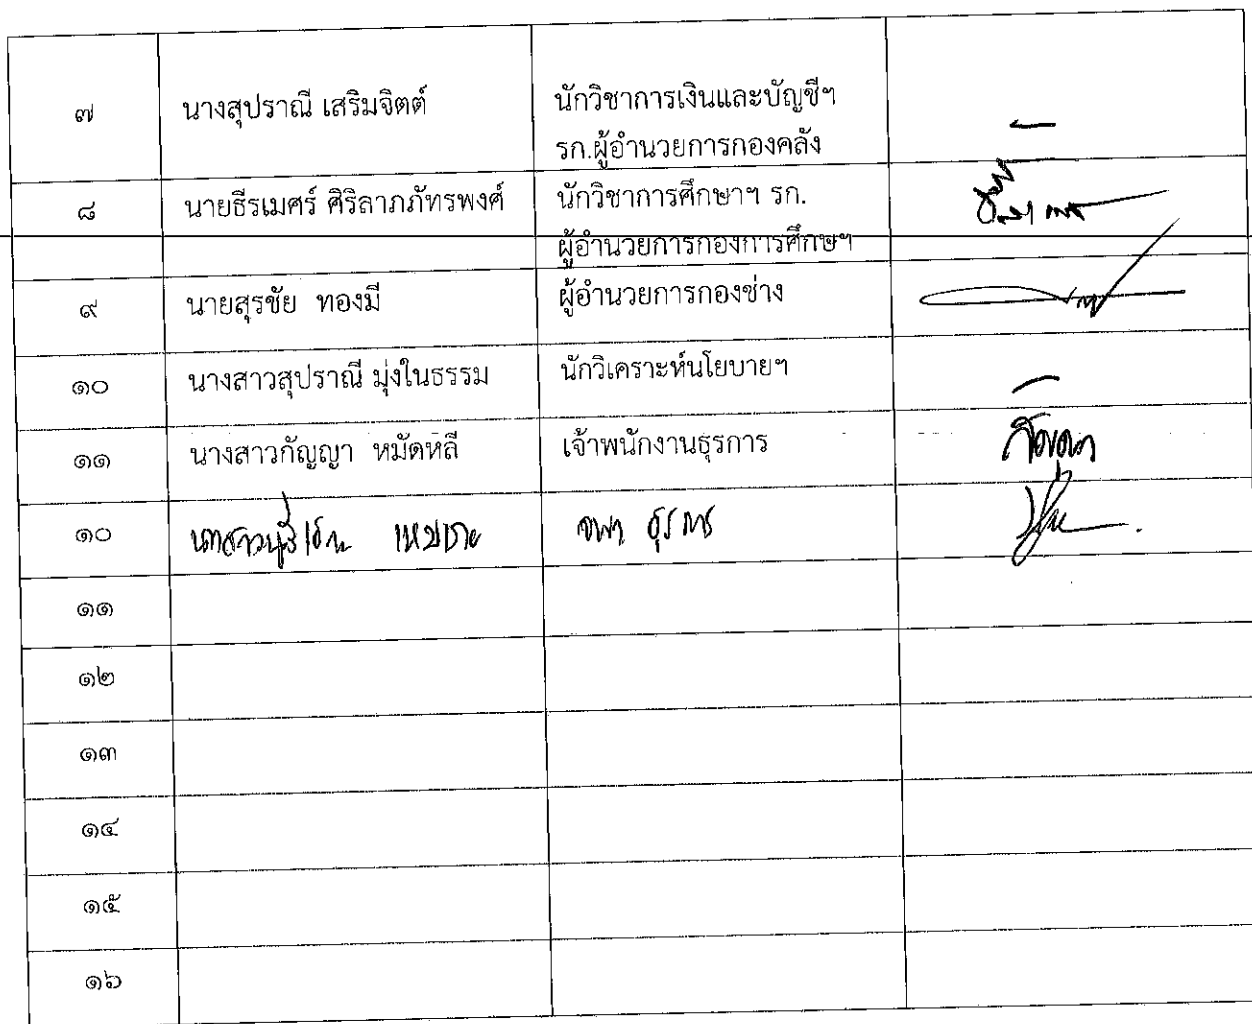 ๗ นางสุปราณี เสริมจิตต์ นักวิชาการเงินและบัญชีฯ
รก.ผู้อำนวยการกองคลัง
๘ นายธีรเมศร์ ศิริลาภภัทรพงศ์ นักวิชาการศึกษาฯ รก.
ผู้อำนวยการกองการศึกษฯ
๙ นายสุรชัย ทองมี ผู้อำนวยการกองช่าง
๑๐ นางสาวสุปราณี มุ่งในธรรม นักวิเคราะห์นโยบายฯ
๑๑ นางสาวกัญญา หมัดหลี เจ้าพนักงานธุรการ
๑๐ จพง ธุรการ
๑๑
๑๒
๑๓
๑๔
๑๕
๑๖